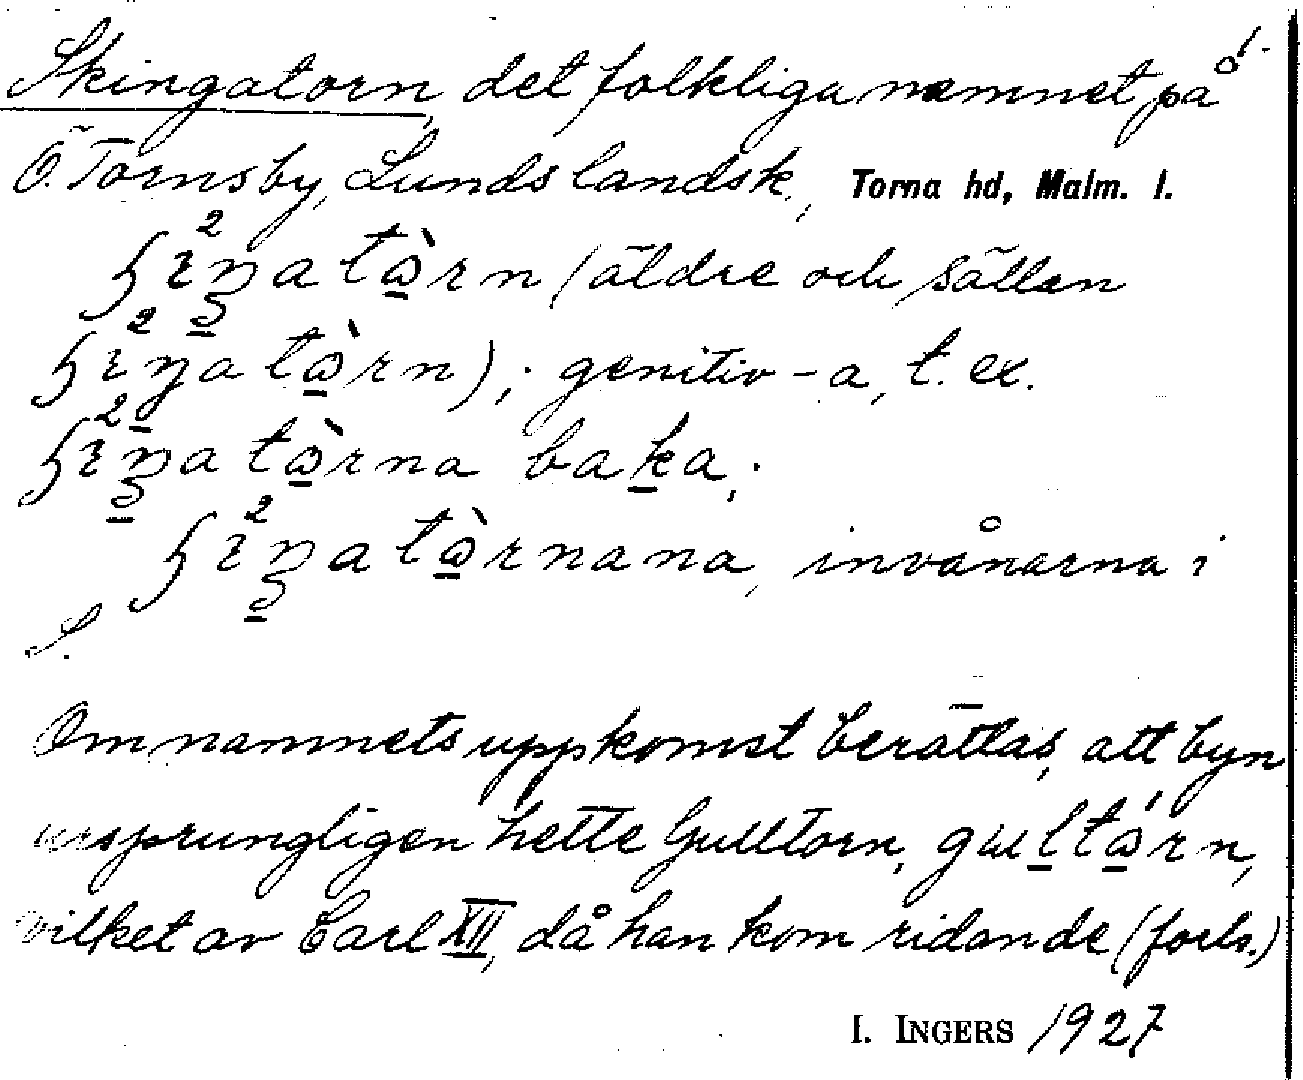 1.
Skingatorn, det folkliga namnet på
Ö. Tornsby, Lunds landsk., Torna hd, Malm. l.
(äldre och sällan
); genitiv -a, t. ex.
baka;
, invånarna i
S.
Om namnets uppkomst berättas, att byn
ursprungligen hette Gulltorn,
vilket av Carl XII, då han kom ridande (forts.)
I. INGERS 1927